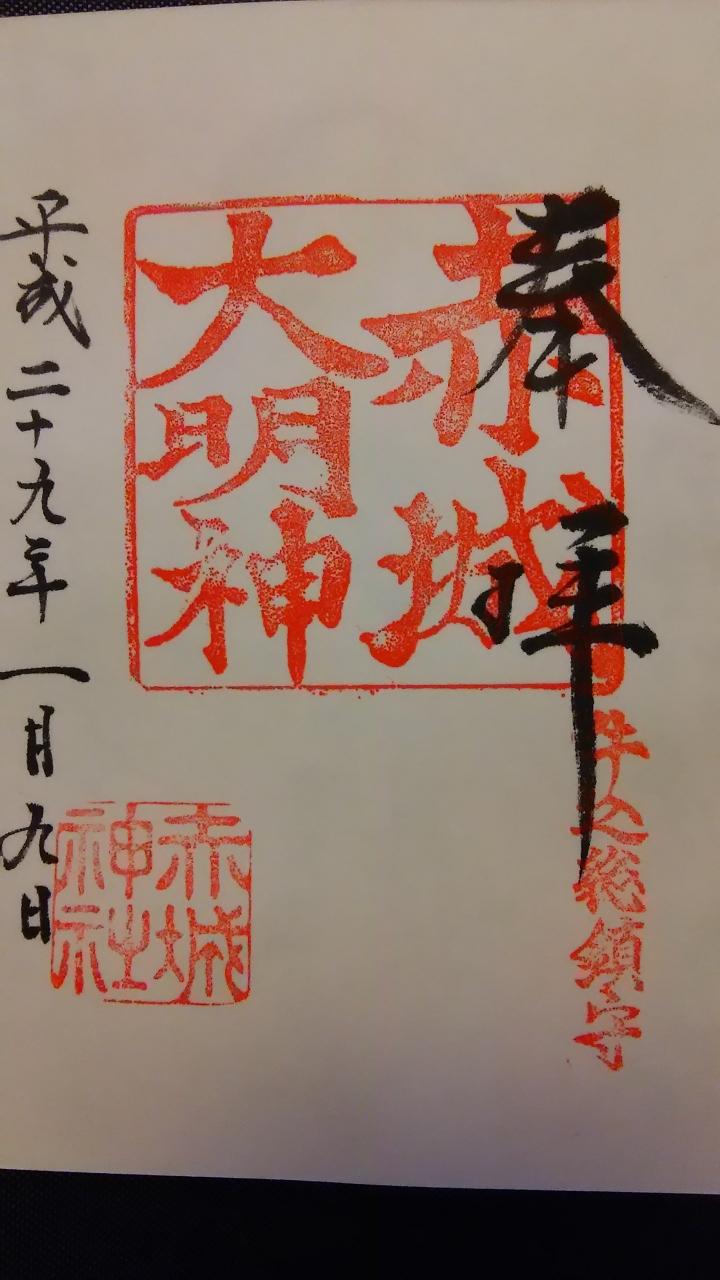 奉拝
牛込総鎮守
赤城
大明神
赤城
神社
平成二十九年一月九日